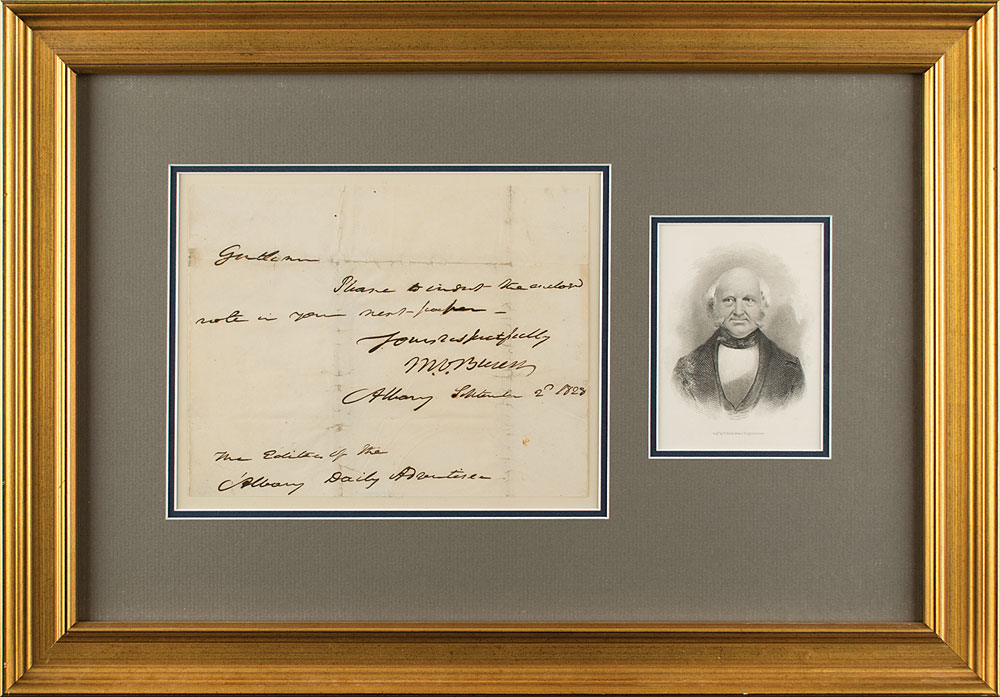 Gentlemen
Please to insert the enclosed
note in your next paper –
Yours respectfully
M.V.Buren
Albany September 2d 1828
The Editor of the
Albany Daily Advertiser